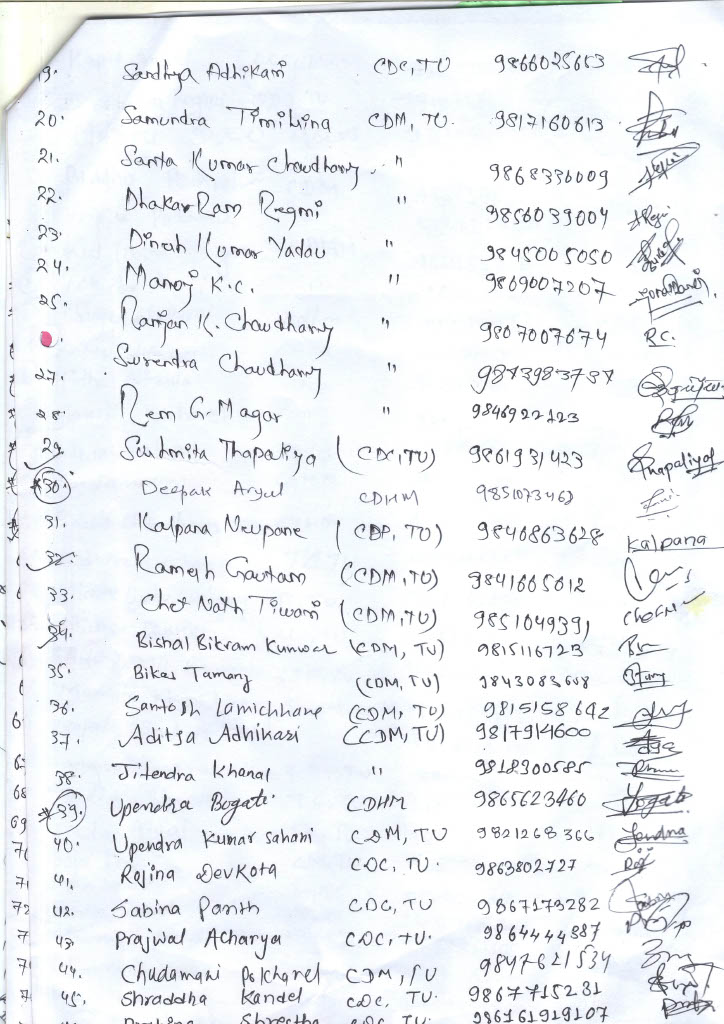 19. Sandhya Adhikari CDC, TU 9866025653
20. Samundra Timilsina CDM, TU. 9817160613
21. Santa Kumar Chaudhary " 9868336009
22. Dhakar Ram Regmi " 9856039004
23. Dinesh Kumar Yadav " 9845005050
24. Manoj K.C. " 9869007207
25. Ranjan K. Chaudhary " 9807007674 R.C.
Surendra Chaudhary "
27. Rem G. Magar " 9846922123
28.
29. Sushmita Thapaliya (CDC, TU) 9861931423 Thapaliya
30. Deepak Aryal CDHM 9851073462
31. Kalpana Neupane (CDP, TU) 9846863628 Kalpana
32. Ramesh Gautam (CDM, TU) 9841605012
33. Chet Nath Tiwari (CDM, TU) 9851049391
34. Bishal Bikram Kunwar (CDM, TU) 9815116723
35. Bikas Tamang (CDM, TU) 9843083608
36. Santosh Lamichhane (CDM, TU) 9815158642
37. Aditya Adhikari (CDM, TU) 9817914600
38. Jitendra Khanal " 9818900585
39. Upendra Bogati CDHM 9865623460 Bogati
40. Upendra Kumar Sahani CDM, TU 9821268366
41. Rojina Devkota CDC, TU. 9863802727
42. Sabina Panth CDC, TU 9867173282
43. Prajwal Acharya CDC, TU. 9864444387
44. Chudamani Pokharel CDM, TU 9847621534
45. Shraddha Kandel CDC, TU. 9867715231
Shrestha CDC, TU. 986161919107